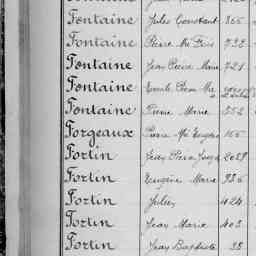 Fontaine Jules Constant 366
Fontaine Pierre Mie Frs 732
Fontaine Jean Pierre Marie 721
Fontaine Emile Pierre Mie
Fontaine Pierre Marie 552
Forgeaux Pierre Mie Eugène 166
Fortin Jean Pierre Joseph 2089
Fortin Eugène Marie 936
Fortin Jules 424
Fortin Jean Marie 403
Fortin Jean Baptiste 38